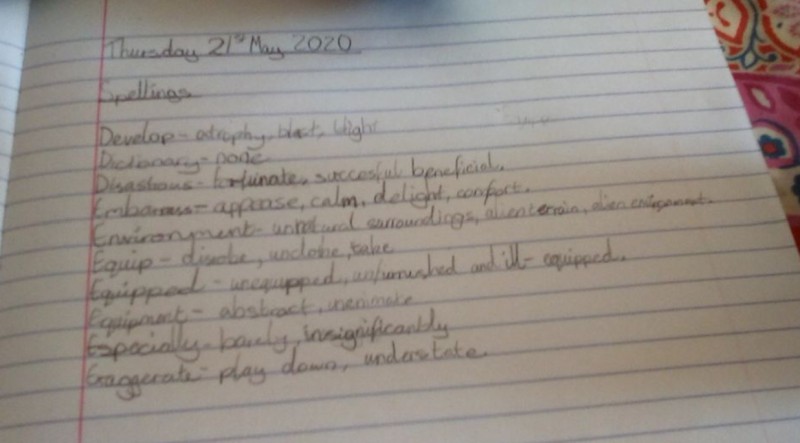 Thursday 21st May 2020
Spellings
Develop - atrophy, blast, blight
Dictionary - none
Disastrous - fortunate, succesful, beneficial.
Embarrass - appease, calm, delight, comfort.
Environment - unnatural surroundings, alien terrain, alien environment.
Equip - disrobe, unclothe, take
Equipped - unequipped, unfurnished and ill-equipped.
Equipment - abstract, inanimate
Especially - barely, insignificantly
Exaggerate - play down, understate.